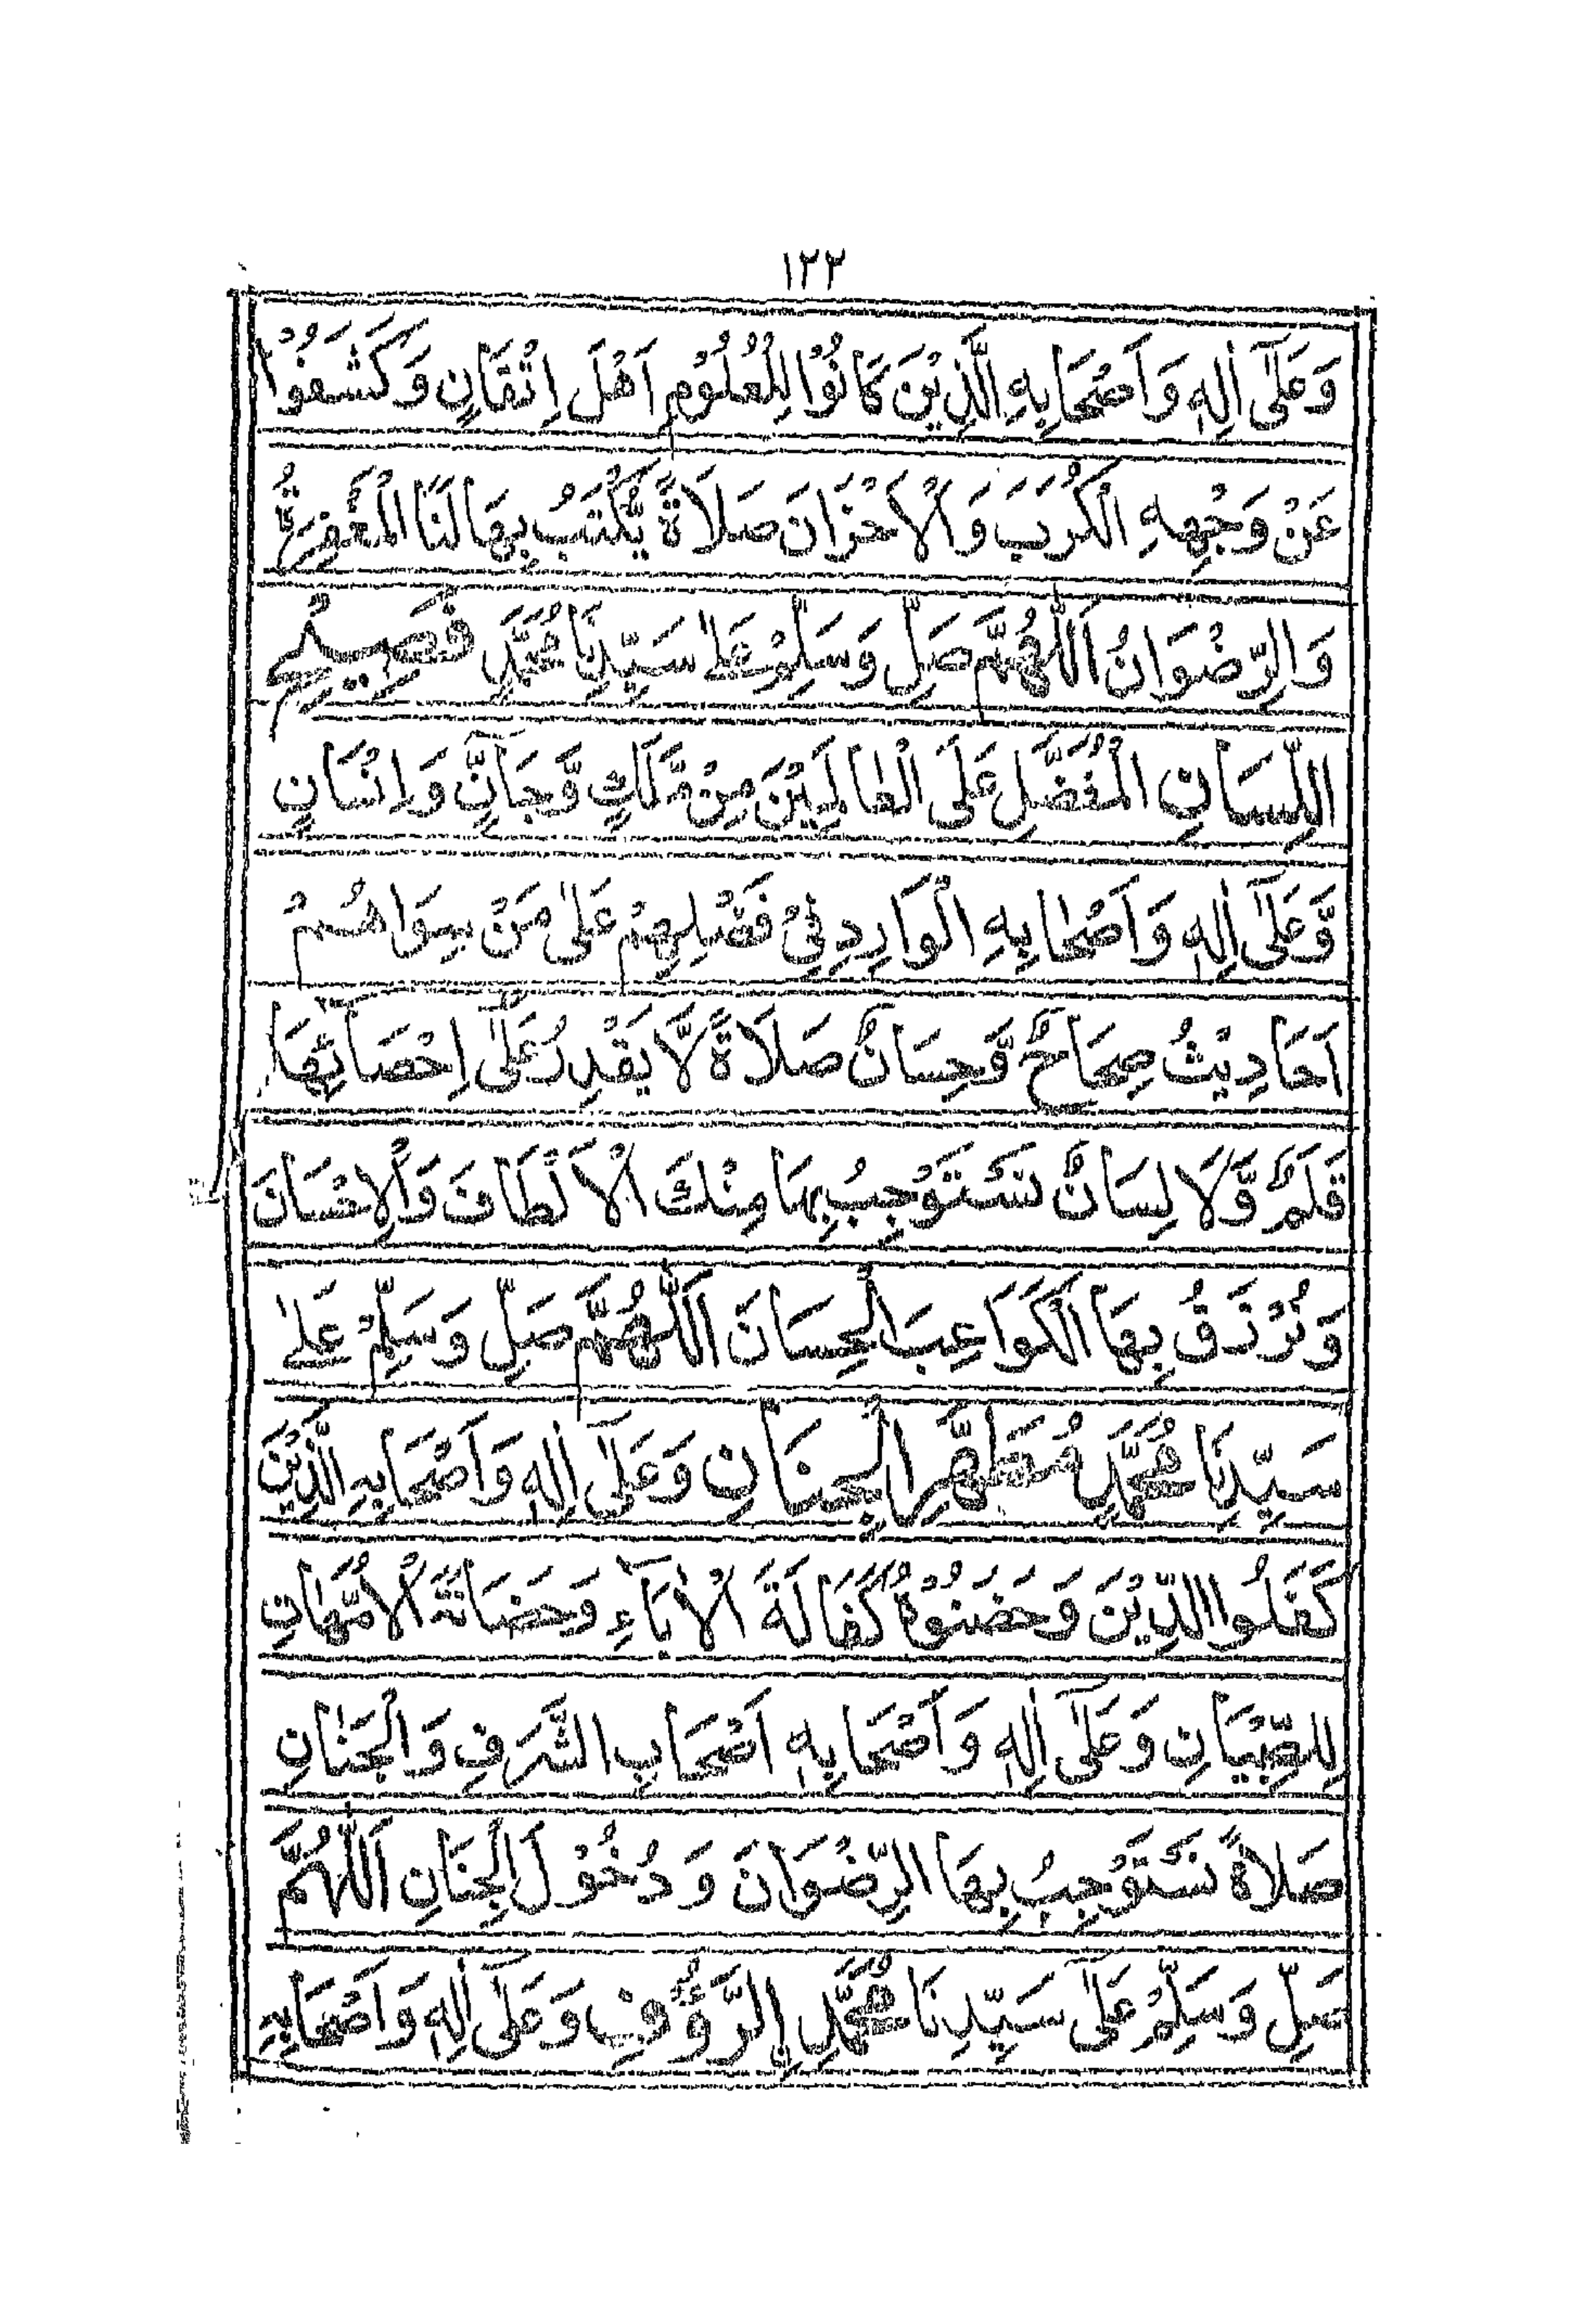 ١٢٢
وَعَلٰٓى اٰلِهٖ وَاَصْحَابِهِ الَّذِيْنَ كَانُوْا لِلْعُلُوْمِ اَهْلَ اِتْقَانٍ وَكَشَفُوْا
عَنْ وَجْهِهِ الْكُرَبَ وَالْاَحْزَانَ صَلَاةً يُّكْتَبُ بِهَا لَنَا الْمَغْفِرَةُ
وَالرِّضْوَانُ اَللّٰهُمَّ صَلِّ وَسَلِّمْ عَلٰى سَيِّدِنَا مُحَمَّدٍ فَصِيْحِ
اللِّسَانِ الْمُفَضَّلِ عَلَى الْعٰالَمِيْنَ مِنْ مَّلَكٍ وَّجَانٍّ وَاِنْسَانٍ
وَّعَلٰٓى اٰلِهٖ وَاَصْحٰابِهِ الْوَارِدِ فِيْ فَضْلِهِمْ عَلٰى مَنْ سِوَاهُمْ
اَحَادِيْثُ صِحَاحٌ وَّحِسَانٌ صَلَاةً لَّا يَقْدِرُ عَلٰٓى اِحْصَائِهَا
قَلَمٌ وَّلَا لِسَانٌ نَسْتَوْجِبُ بِهَا مِنْكَ الْاَلْطَافَ وَالْاِحْسَانَ
وَنُرْزَقُ بِهَا الْكَوَاعِبَ الْحِسَانَ اَللّٰهُمَّ صَلِّ وَسَلِّمْ عَلٰى
سَيِّدِنَا مُحَمَّدٍ مُطَهَّرِ الْجَنَانِ وَعَلٰٓى اٰلِهٖ وَاَصْحَابِهِ الَّذِيْنَ
كَفَلُوا الدِّيْنَ وَحَضَنُوْهُ كَفَالَةَ الْاٰبَآءِ وَحَضَانَةَ الْاُمَّهَاتِ
لِلصِّبْيَانِ وَعَلٰٓى اٰلِهٖ وَاَصْحَابِهٖ اَصْحَابِ الشَّرَفِ وَالْجَنَانِ
صَلَاةً نَسْتَوْجِبُ بِهَا الرِّضْوَانَ وَدُخُوْلَ الْجِنَانِ اَللّٰهُمَّ
صَلِّ وَسَلِّمْ عَلٰى سَيِّدِنَا مُحَمَّدِ نِ الرَّؤُفِ وَعَلٰٓى اٰلِهٖ وَاَصْحَابِهٖ